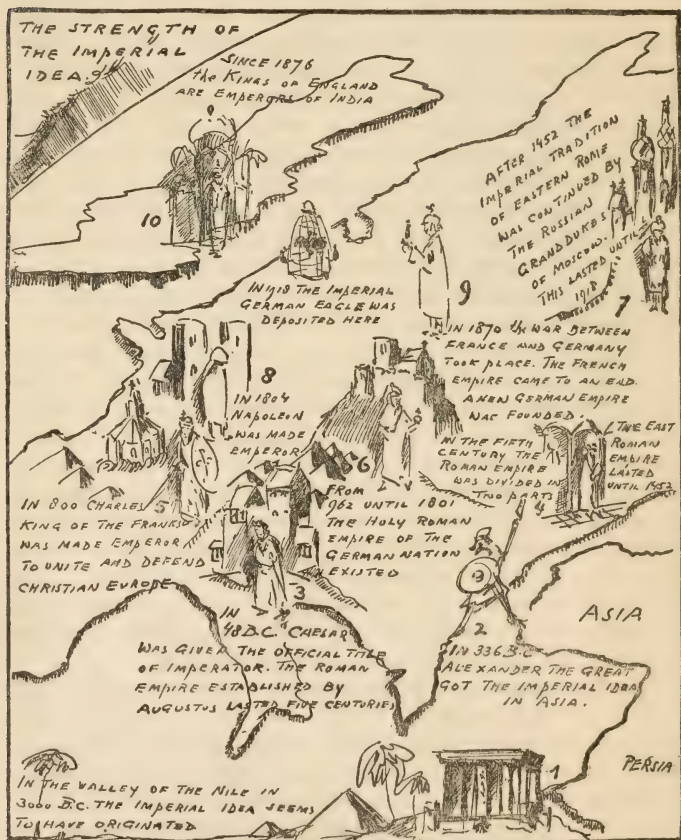 THE STRENGTH OF
THE IMPERIAL
IDEA.
SINCE 1876
the KINGS OF ENGLAND
ARE EMPERORS OF INDIA
10
AFTER 1452 THE
IMPERIAL TRADITION
OF EASTERN ROME
WAS CONTINUED BY
THE RUSSIAN
GRANDDUKES
OF MOSCOW.
THIS LASTED UNTIL
1918
7
IN 1918 THE IMPERIAL
GERMAN EAGLE WAS
DEPOSITED HERE
9
IN 1870 the WAR BETWEEN
FRANCE AND GERMANY
TOOK PLACE. THE FRENCH
EMPIRE CAME TO AN END.
A NEW GERMAN EMPIRE
WAS FOUNDED.
8
IN 1804
NAPOLEON
WAS MADE
EMPEROR
IN THE FIFTH
CENTURY THE
ROMAN EMPIRE
WAS DIVIDED IN
TWO PARTS
4
THE EAST
ROMAN
EMPIRE
LASTED
UNTIL 1452
5
IN 800 CHARLES
KING OF THE FRANKS
WAS MADE EMPEROR
TO UNITE AND DEFEND
CHRISTIAN EUROPE
6
FROM
962 UNTIL 1801
THE HOLY ROMAN
EMPIRE OF THE
GERMAN NATION
EXISTED
3
IN
48 B.C. CAESAR
WAS GIVEN THE OFFICIAL TITLE
OF IMPERATOR. THE ROMAN
EMPIRE ESTABLISHED BY
AUGUSTUS LASTED FIVE CENTURIES
2
IN 336 B.C.
ALEXANDER THE GREAT
GOT THE IMPERIAL IDEA
IN ASIA.
ASIA
PERSIA
1
IN THE VALLEY OF THE NILE IN
3000 B.C. THE IMPERIAL IDEA SEEMS
TO HAVE ORIGINATED